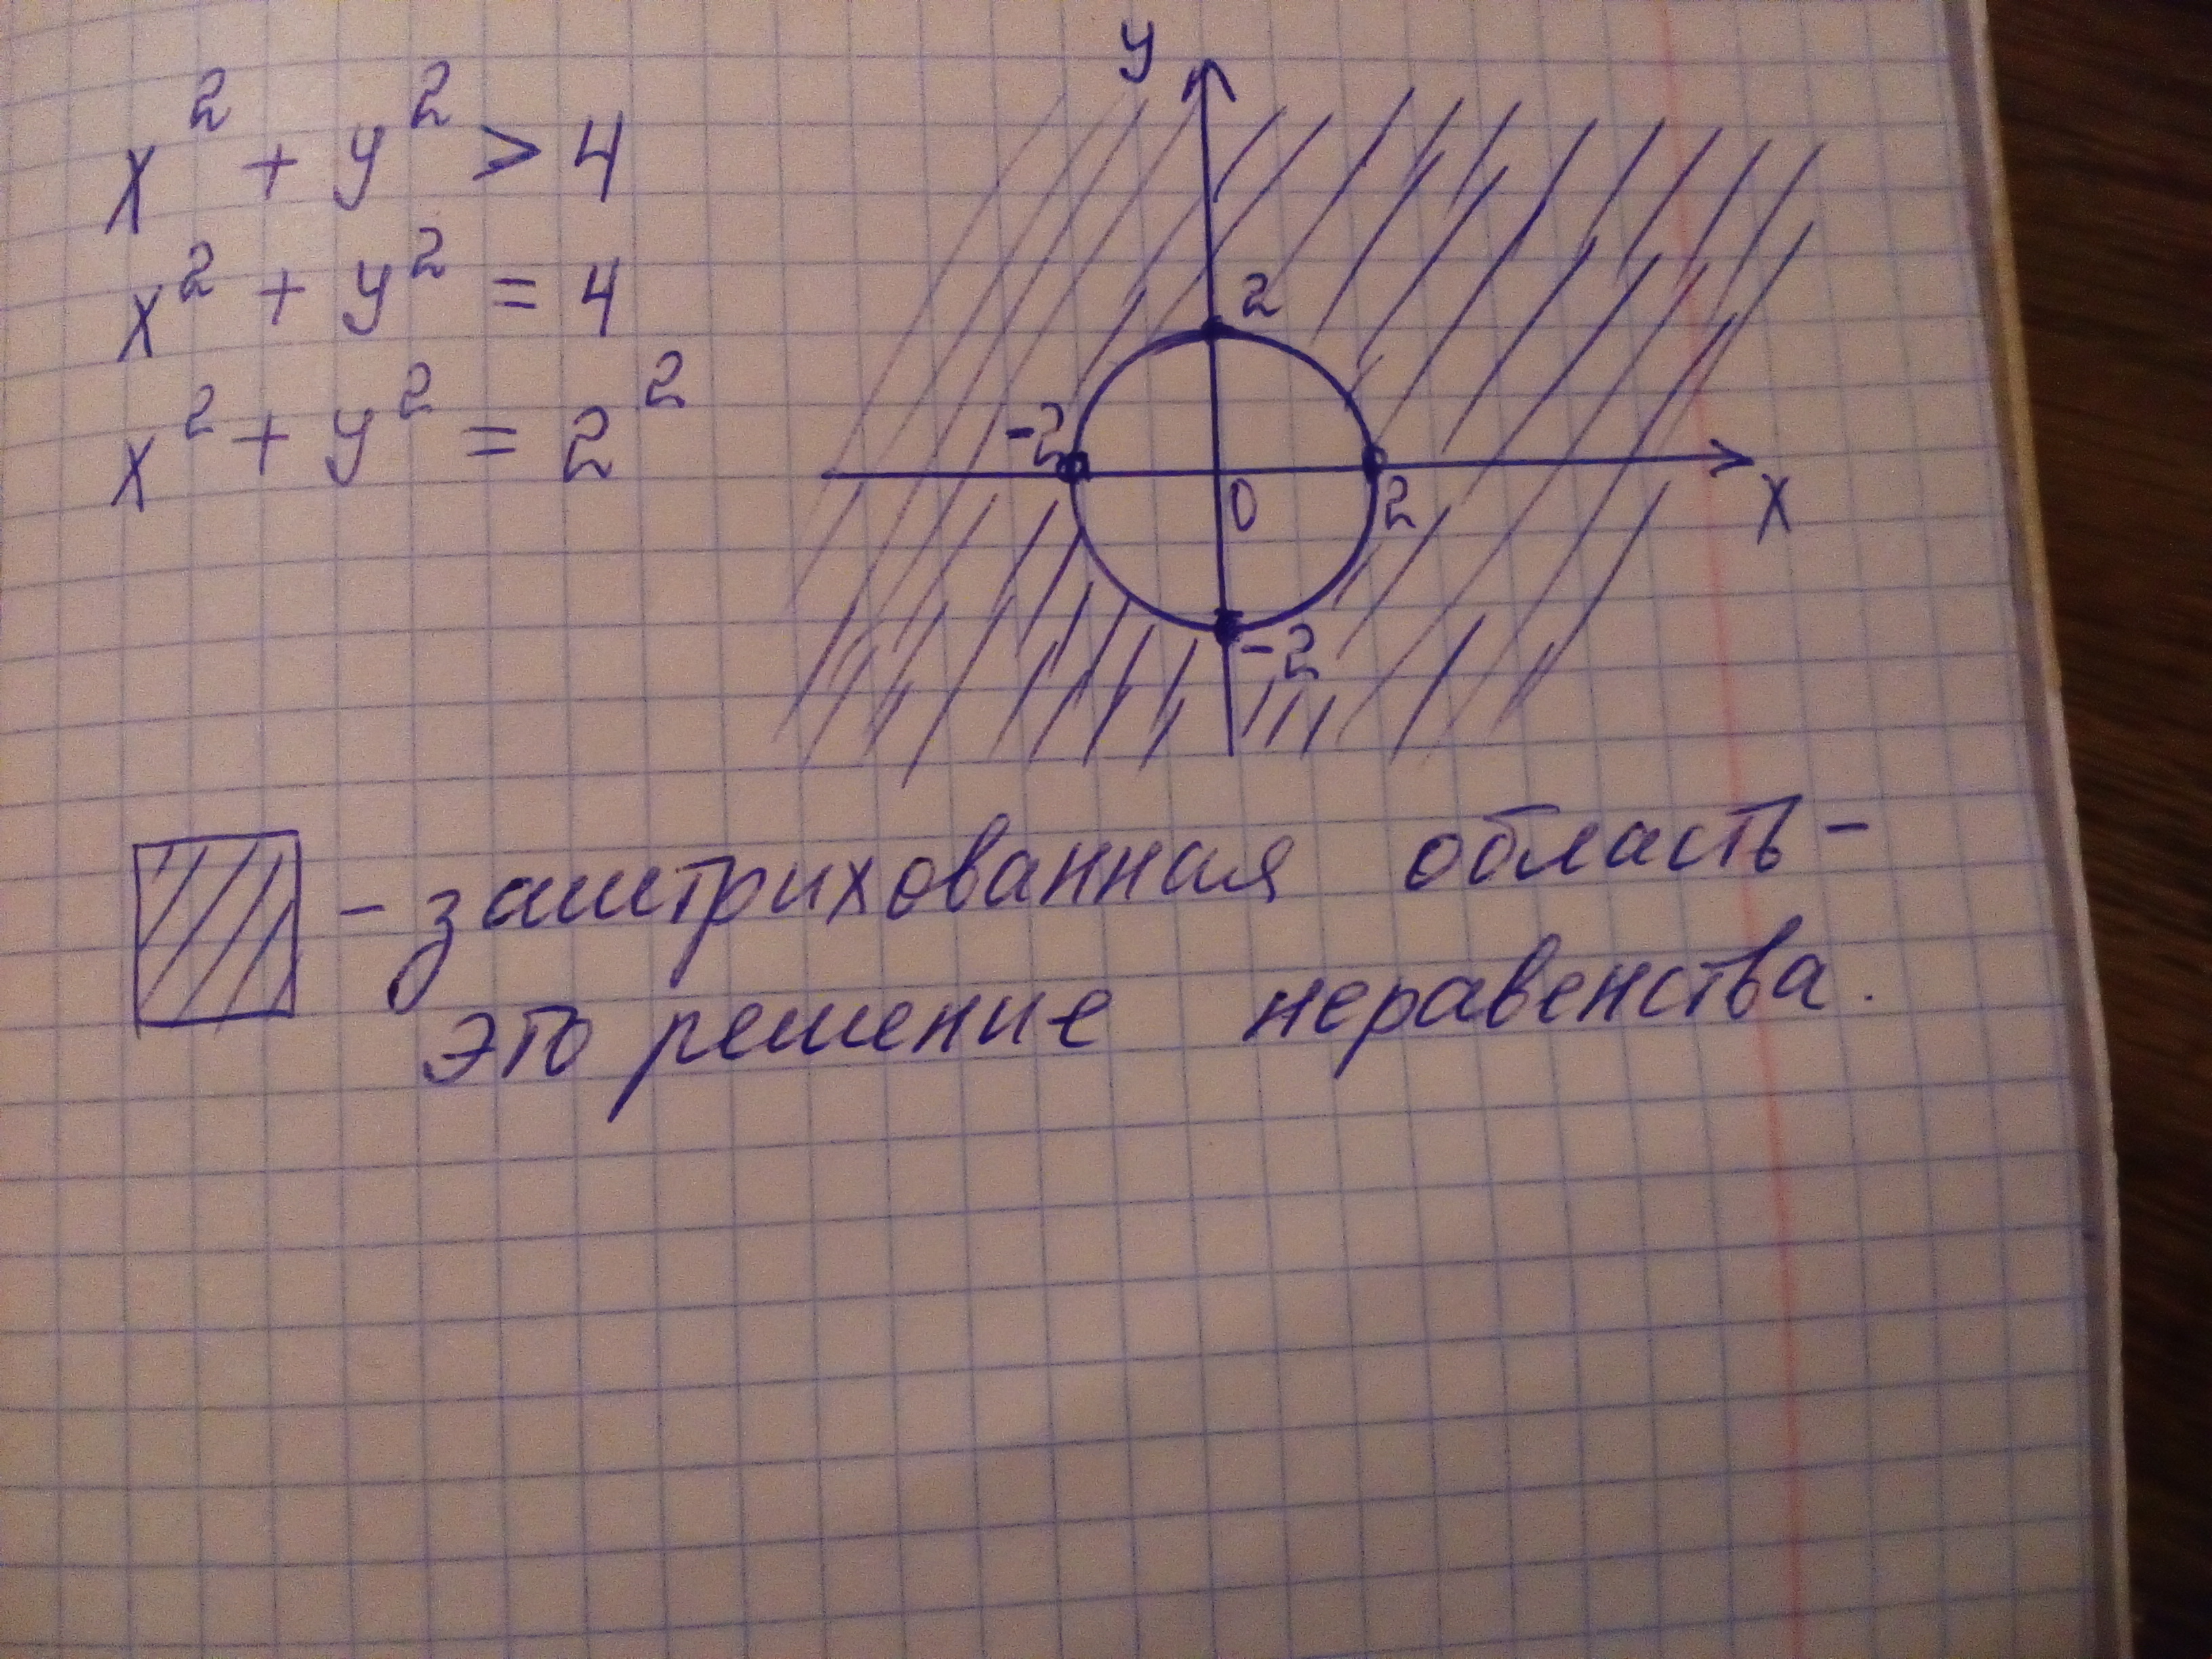 x² + y² > 4
x² + y² = 4
x² + y² = 2²
y
2
-2
0
2
x
-2
- заштрихованная область -
это решение неравенства.